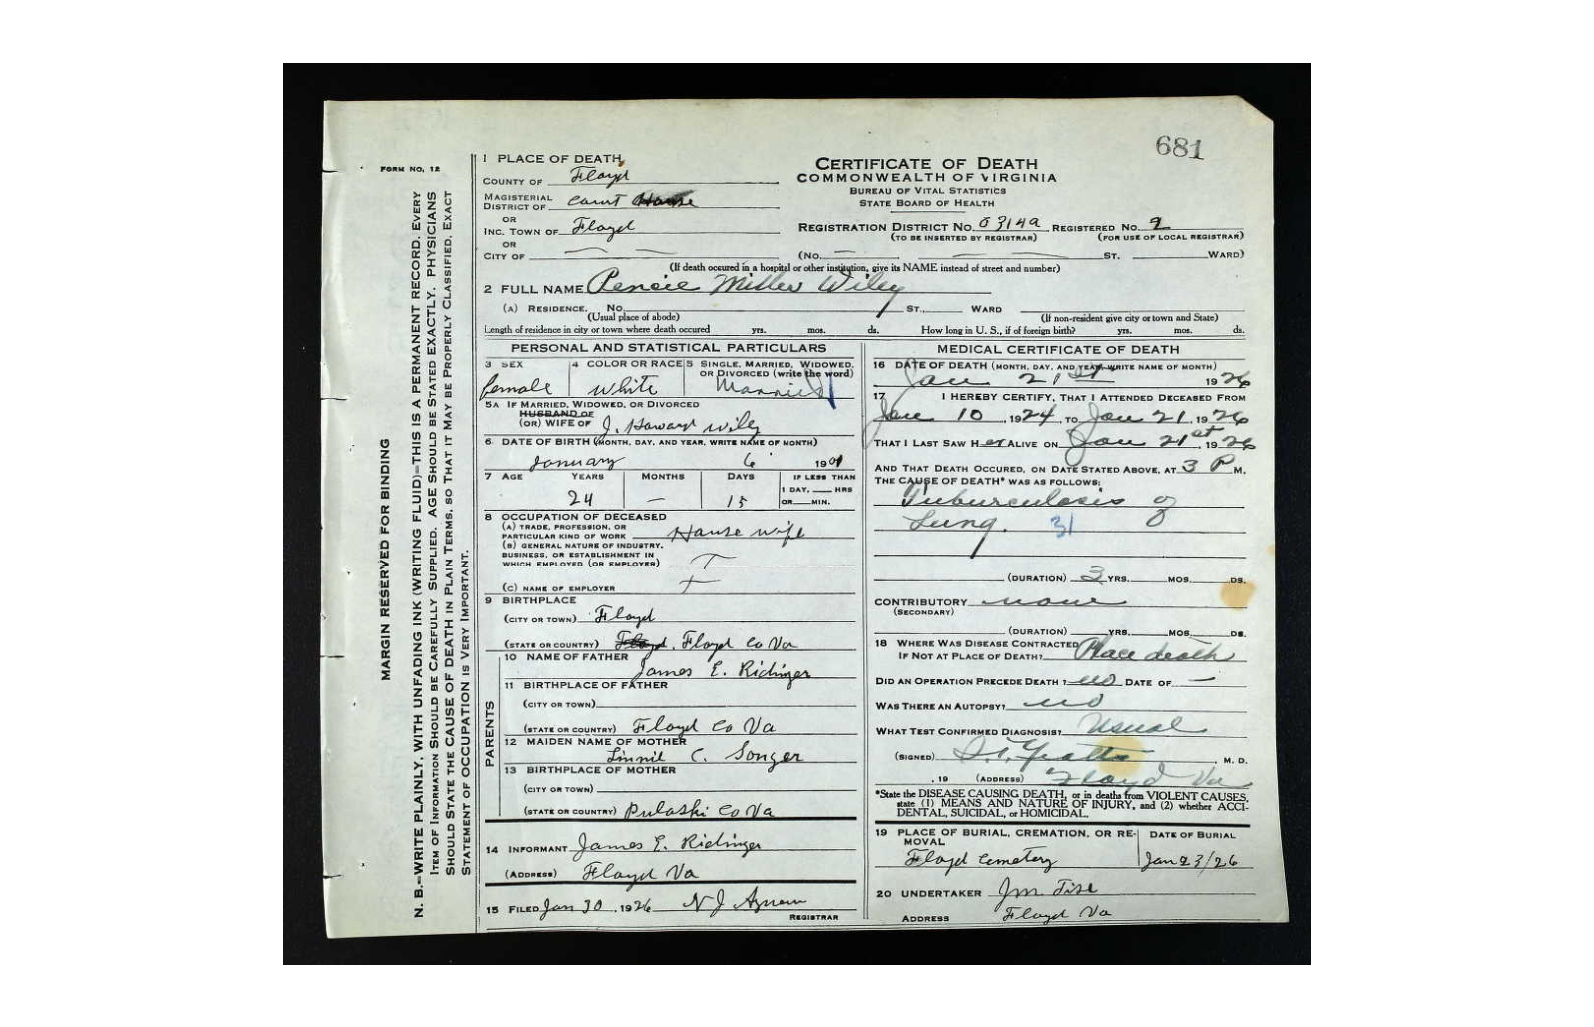 681
FORM NO. 12
MARGIN RESERVED FOR BINDING
N. B.—WRITE PLAINLY, WITH UNFADING INK (WRITING FLUID)—THIS IS A PERMANENT RECORD. EVERY
ITEM OF INFORMATION SHOULD BE CAREFULLY SUPPLIED. AGE SHOULD BE STATED EXACTLY. PHYSICIANS
SHOULD STATE THE CAUSE OF DEATH IN PLAIN TERMS, SO THAT IT MAY BE PROPERLY CLASSIFIED. EXACT
STATEMENT OF OCCUPATION IS VERY IMPORTANT.
CERTIFICATE OF DEATH
COMMONWEALTH OF VIRGINIA
BUREAU OF VITAL STATISTICS
STATE BOARD OF HEALTH
1 PLACE OF DEATH
COUNTY OF Floyd
MAGISTERIAL DISTRICT OF Court House
OR
INC. TOWN OF Floyd
OR
CITY OF
REGISTRATION DISTRICT NO. 0314a REGISTERED NO. 2
(TO BE INSERTED BY REGISTRAR) (FOR USE OF LOCAL REGISTRAR)
(NO. ST. WARD)
(If death occured in a hospital or other institution, give its NAME instead of street and number)
2 FULL NAME Miller Wiley
(A) RESIDENCE. NO. ST., WARD
(Usual place of abode) (If non-resident give city or town and State)
Length of residence in city or town where death occured yrs. mos. ds. How long in U. S., if of foreign birth? yrs. mos. ds.
PERSONAL AND STATISTICAL PARTICULARS
3 SEX 4 COLOR OR RACE 5 SINGLE, MARRIED, WIDOWED, OR DIVORCED (write the word)
female white Married
5A IF MARRIED, WIDOWED, OR DIVORCED
HUSBAND OF
(OR) WIFE OF J. Howard Wiley
6 DATE OF BIRTH (MONTH, DAY, AND YEAR, WRITE NAME OF MONTH)
January 6 190
7 AGE YEARS MONTHS DAYS IF LESS THAN
1 DAY, HRS
OR MIN.
24 — 15
8 OCCUPATION OF DECEASED
(A) TRADE, PROFESSION, OR
PARTICULAR KIND OF WORK House wife
(B) GENERAL NATURE OF INDUSTRY,
BUSINESS, OR ESTABLISHMENT IN
WHICH EMPLOYED (OR EMPLOYER)
(C) NAME OF EMPLOYER
9 BIRTHPLACE
(CITY OR TOWN) Floyd
(STATE OR COUNTRY) Floyd Co Va
PARENTS
10 NAME OF FATHER
James E. Ridinger
11 BIRTHPLACE OF FATHER
(CITY OR TOWN)
(STATE OR COUNTRY) Floyd Co Va
12 MAIDEN NAME OF MOTHER
C. Songer
13 BIRTHPLACE OF MOTHER
(CITY OR TOWN)
(STATE OR COUNTRY) Pulaski Co Va
14 INFORMANT James E. Ridinger
(ADDRESS) Floyd Va
15 FILED Jan 30, 1926 N J
REGISTRAR
MEDICAL CERTIFICATE OF DEATH
16 DATE OF DEATH (MONTH, DAY, AND YEAR, WRITE NAME OF MONTH)
Jan 21st 1926
17 I HEREBY CERTIFY, THAT I ATTENDED DECEASED FROM
Jan 10, 1924, TO Jan 21, 1926
THAT I LAST SAW HER ALIVE ON Jan 21st, 1926
AND THAT DEATH OCCURED, ON DATE STATED ABOVE, AT 3 P M.
THE CAUSE OF DEATH* WAS AS FOLLOWS:
Tuburculosis of
Lung. 31
(DURATION) 3 YRS. MOS. DS.
CONTRIBUTORY none
(SECONDARY)
(DURATION) YRS. MOS. DS.
18 WHERE WAS DISEASE CONTRACTED
IF NOT AT PLACE OF DEATH? Place death
DID AN OPERATION PRECEDE DEATH? no DATE OF —
WAS THERE AN AUTOPSY? no
WHAT TEST CONFIRMED DIAGNOSIS? Usual
(SIGNED) M. D.
, 19 (ADDRESS) Floyd Va
*State the DISEASE CAUSING DEATH, or in deaths from VIOLENT CAUSES,
state (1) MEANS AND NATURE OF INJURY, and (2) whether ACCI-
DENTAL, SUICIDAL, or HOMICIDAL.
19 PLACE OF BURIAL, CREMATION, OR RE-
MOVAL DATE OF BURIAL
Floyd Cemetery Jan 23/26
20 UNDERTAKER
ADDRESS Floyd Va